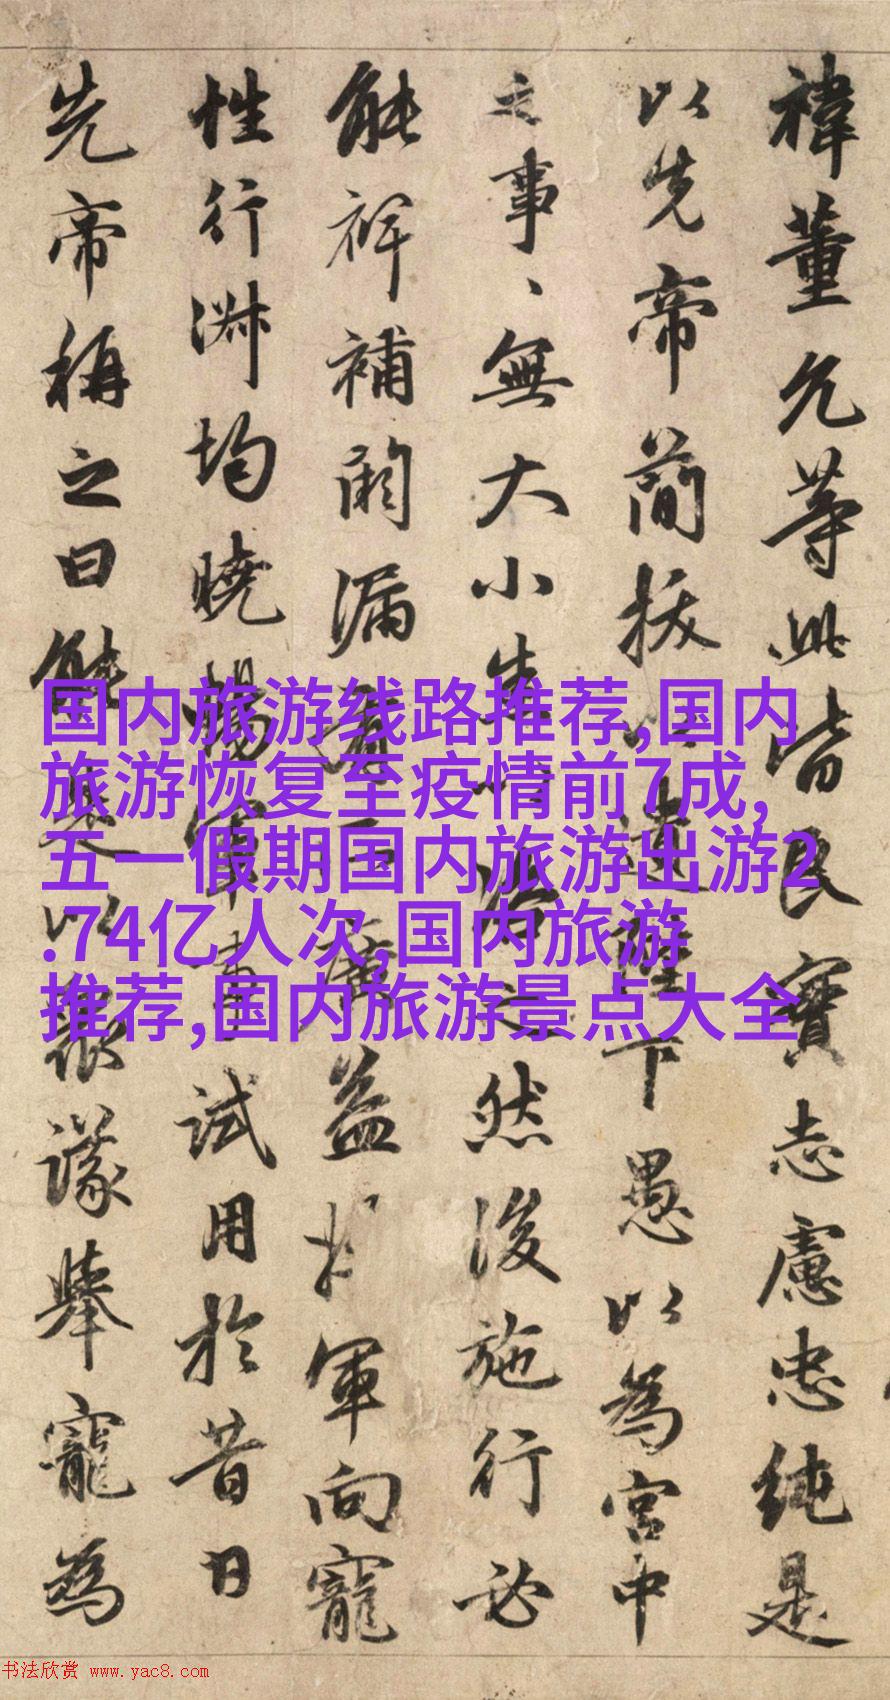 禕董允等此皆良實志慮忠純是
以先帝簡拔以遺陛下愚以為宮中
之事、無大小然後施行必
能裨補闕漏有所廣益將軍向寵
性行淋均曉暢軍事試用於昔日
先帝稱之曰能是以眾議舉寵為
国内旅游线路推荐,国内
旅游恢复至疫情前7成,
五一假期国内旅游出游2
.74亿人次,国内旅游
推荐,国内旅游景点大全
书法欣赏 www.yac8.com